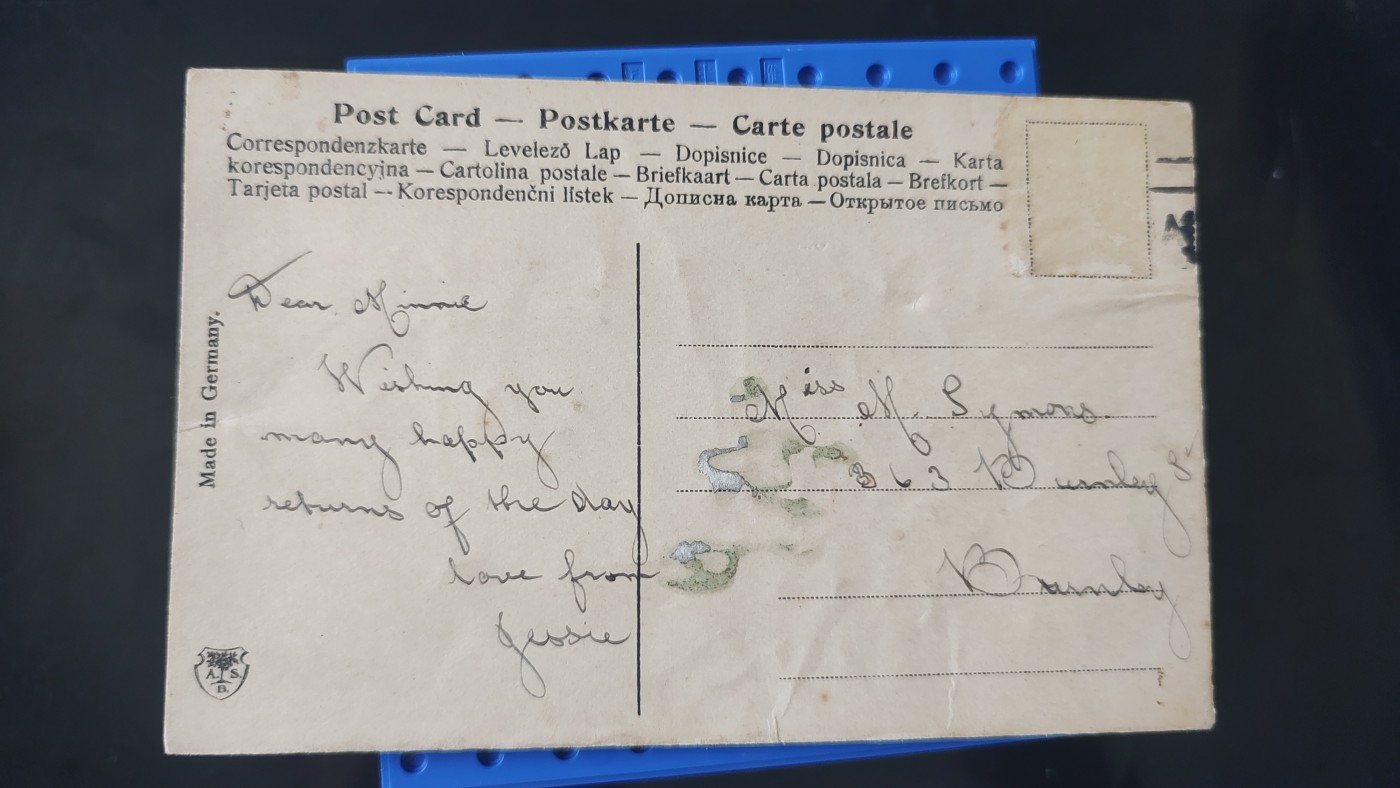 Post Card — Postkarte — Carte postale
Correspondenzkarte — Levelező Lap — Dopisnice — Dopisnica — Karta
korespondencyjna — Cartolina postale — Briefkaart — Carta postala — Brefkort —
Tarjeta postal — Korespondenčni listek — Дописна карта — Открытое письмо
Made in Germany.
Dear Minnie
Wishing you
many happy
returns of the day
love from
Jessie
A. S.
B.
Miss M. Symons.
363 Burnley St
Burnley